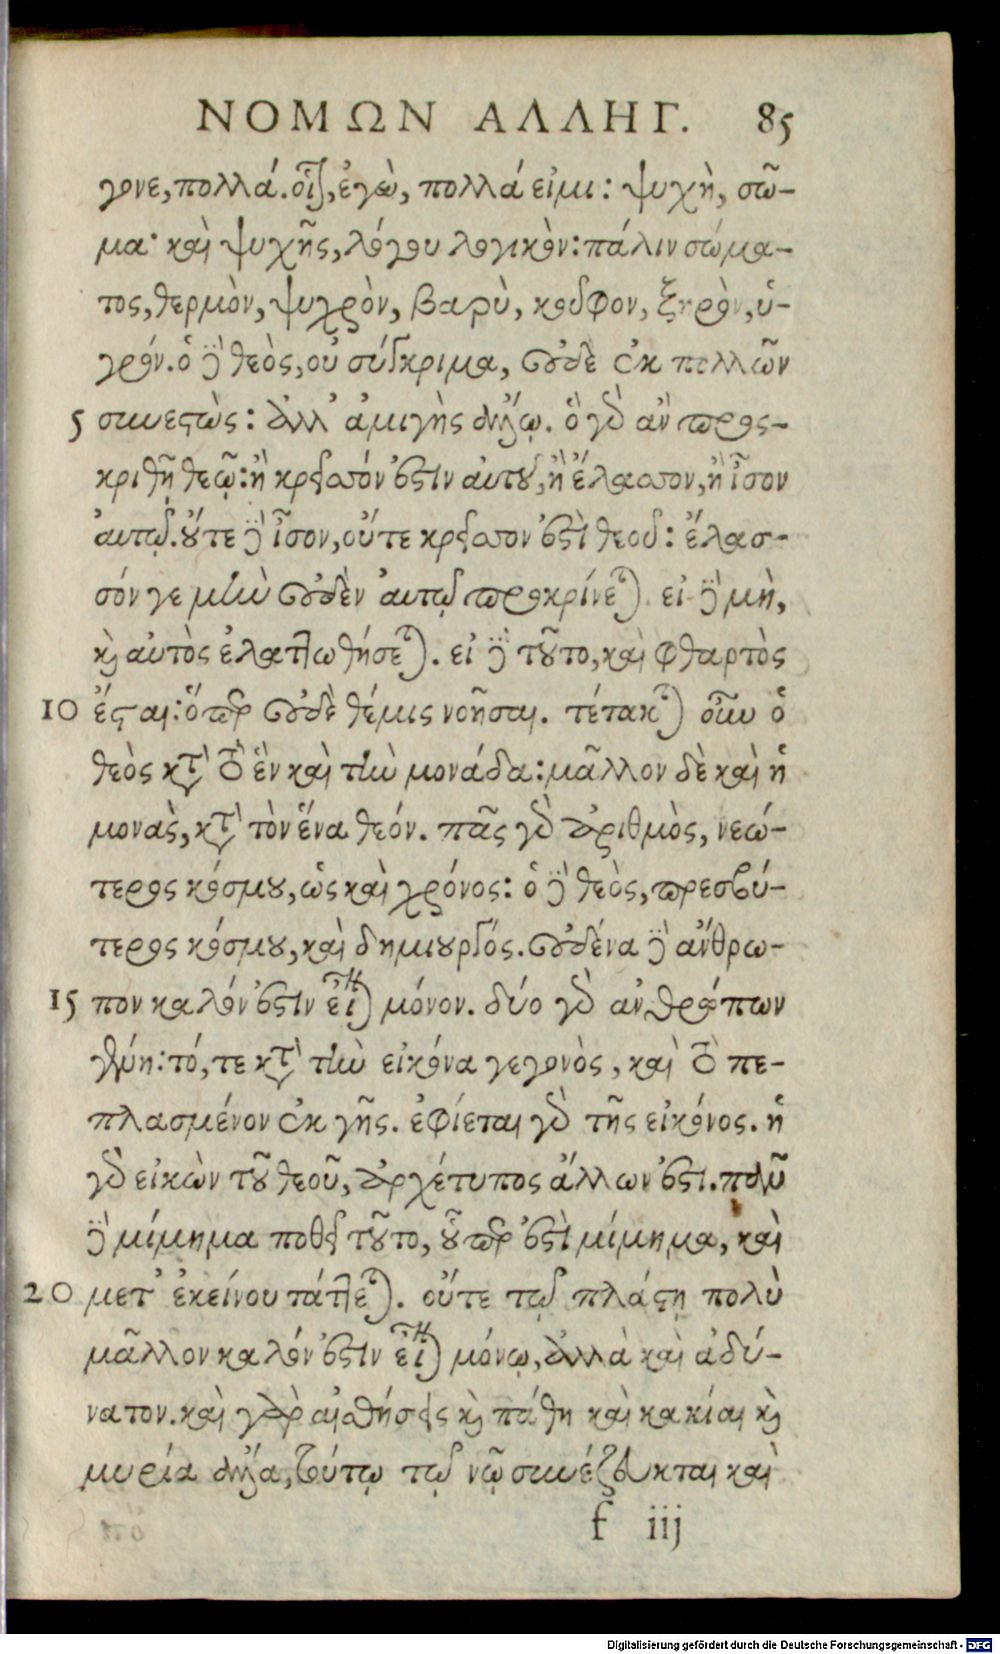 ΝΟΜΩΝ ΑΛΛΗΓ. 85
γονε, πολλά. οἷον, ἐγὼ, πολλά εἰμι: ψυχὴ, σῶ-
μα· καὶ ψυχῆς, λόγου λογικὸν: πάλιν σώμα-
τος, θερμὸν, ψυχρὸν, βαρὺ, κοῦφον, ξηρὸν, ὑ-
γρόν. ὁ δὲ θεὸς, οὐ σύγκριμα, οὐδὲ ἐκ πολλῶν
5 συνεστὼς: ἀλλ' ἀμιγὴς ἄλλῳ. ὃ γὰρ ἂν προς-
κριθῇ θεῷ: ἢ κρεῖσσόν ἐστιν αὐτοῦ, ἢ ἔλασσον, ἢ ἶσον
αὐτῷ. οὔτε δὲ ἶσον, οὔτε κρεῖσσον ἐστὶ θεοῦ: ἔλασ-
σόν γε μὴν οὐδὲν αὐτῷ προκρίνεται. εἰ δὲ μὴ,
καὶ αὐτὸς ἐλαττωθήσεται. εἰ δὲ τοῦτο, καὶ φθαρτὸς
10 ἔσται: ὅπερ οὐδὲ θέμις νοῆσαι. τέτακται οὖν ὁ
θεὸς κατὰ τὸ ἓν καὶ τὴν μονάδα: μᾶλλον δὲ καὶ ἡ
μονὰς, κατὰ τὸν ἕνα θεόν. πᾶς γὰρ ἀριθμὸς, νεώ-
τερος κόσμου, ὡς καὶ χρόνος: ὁ δὲ θεὸς, πρεσβύ-
τερος κόσμου, καὶ δημιουργός. οὐδένα δὲ ἄνθρω-
15 πον καλόν ἐστιν εἶναι μόνον. δύο γὰρ ἀνθρώπων
γένη: τό, τε κατὰ τὴν εἰκόνα γεγονὸς, καὶ τὸ πε-
πλασμένον ἐκ γῆς. ἐφίεται γὰρ τῆς εἰκόνος. ἡ
γὰρ εἰκὼν τοῦ θεοῦ, ἀρχέτυπος ἄλλων ἐστι. πᾶν
δὲ μίμημα ποθεῖ τοῦτο, οὗπερ ἐστὶ μίμημα, καὶ
20 μετ' ἐκείνου τάττεται. οὔτε τῷ πλάστῃ πολὺ
μᾶλλον καλόν ἐστιν εἶναι μόνῳ, ἀλλὰ καὶ ἀδύ-
νατον. καὶ γὰρ αἰσθήσεις καὶ πάθη καὶ κακίαι καὶ
μυρία ἄλλα, τούτῳ τῷ νῷ συνέζευκται καὶ
f iij
Digitalisierung gefördert durch die Deutsche Forschungsgemeinschaft - DFG